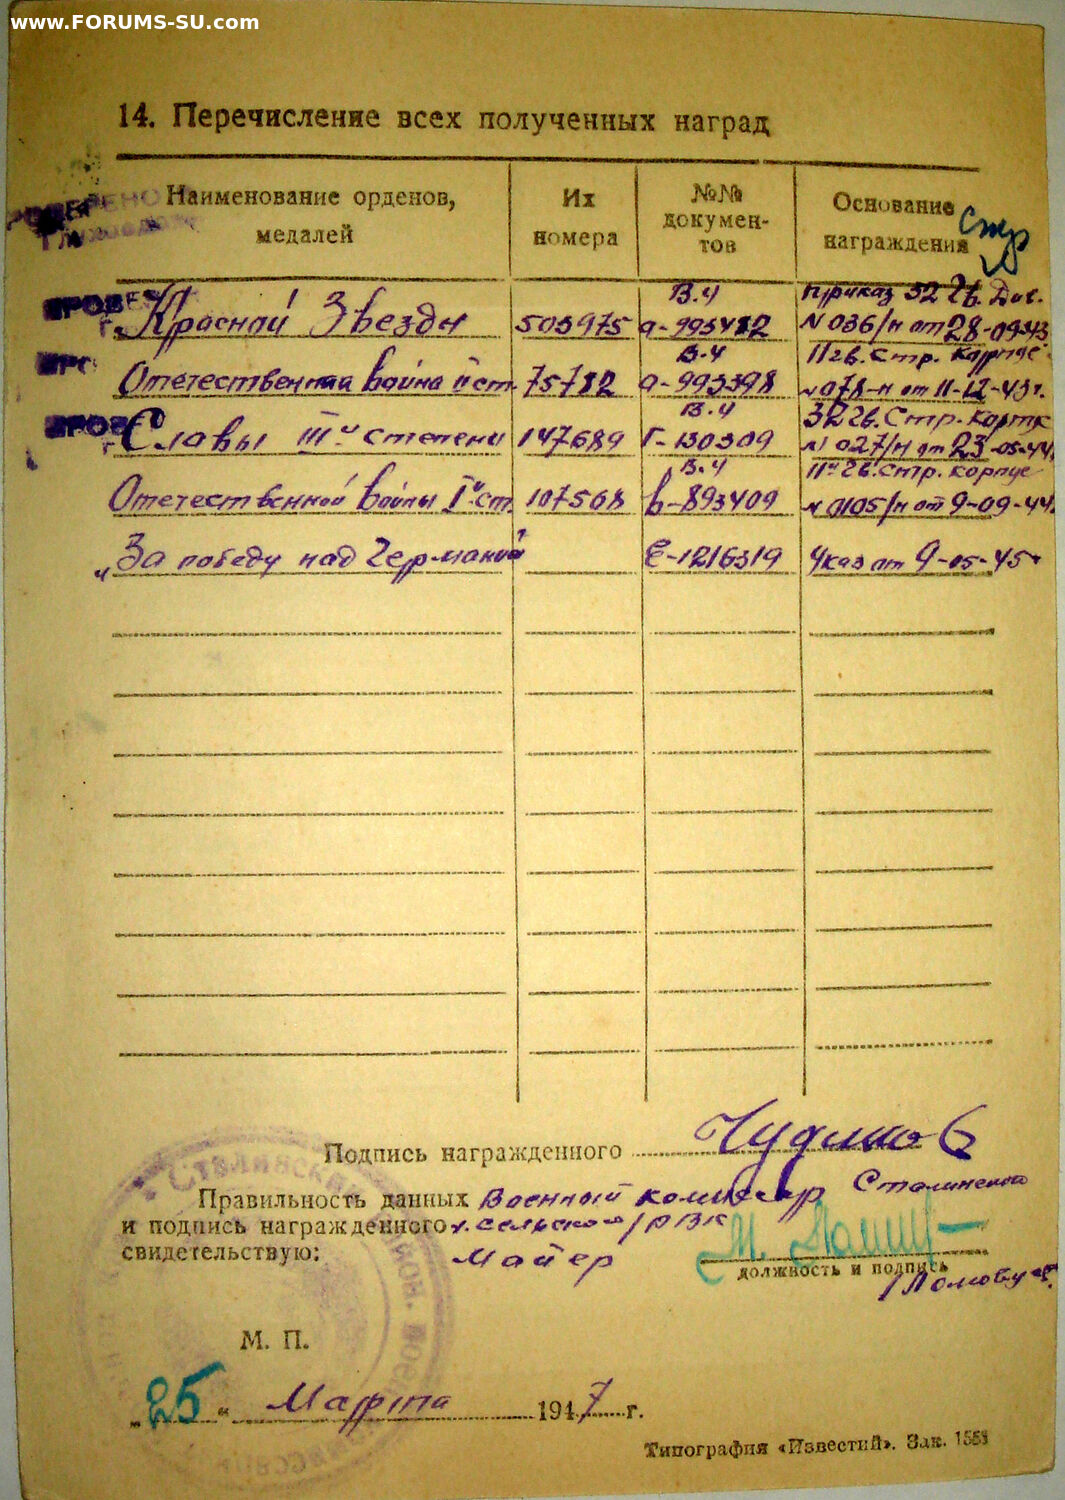 www.FORUMS-SU.com
14. Перечисление всех полученных наград
Наименование орденов, медалей
Их номера
№№ документов
Основание награждения
стр
В.Ч Приказ 32 Гв. Див.
Красной Звезды 503975 а-993482 N 036/н от 28-09-43
В.Ч 11 гв. Стр. Корпус
Отечественная война II ст. 75782 а-993398 N 078-н от 11-12-43 г.
В.Ч 32 Гв. Стр.
Славы IIIй степени 147689 Г-130309 N 027/н от 23-05-44
В.Ч 11й Гв. Стр. корпус
Отечественной войны Iй ст. 107568 В-893409 N 0105/н от 9-09-44
"За победу над Германией" Е-1216319 Указ от 9-05-45
Подпись награжденного
Правильность данных Военный комиссар Сталинского
и подпись награженного сельского РВК
свидетельствую: Майор
должность и подпись
М. П.
„25“ Марта 1947 г.
Типография «Известий». Зак. 1558